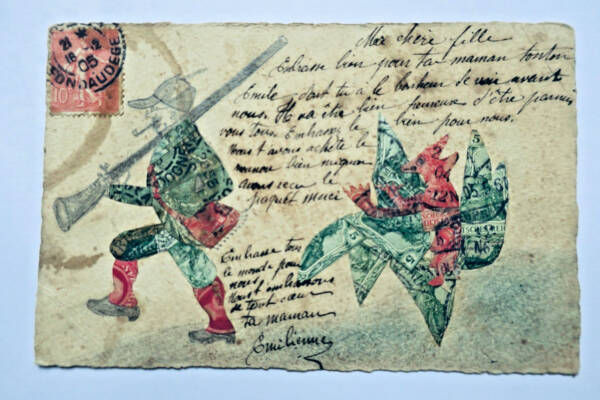 21
16 -12
05
FONDAUDEGE
10
Ma chère fille
Embrasse bien pour ta maman tonton
Emile dont tu a le bonheur de voir avant
nous. Il va être bien heureux d'être parmis
vous tous. Embrasse le bien pour nous.
Nous t'avons acheté le
bien mignon
avons reçu le
paquet merci
Embrasse tout
le monde pour
nous
Nous t'embrassons
de tout cœur
ta maman
Emilienne